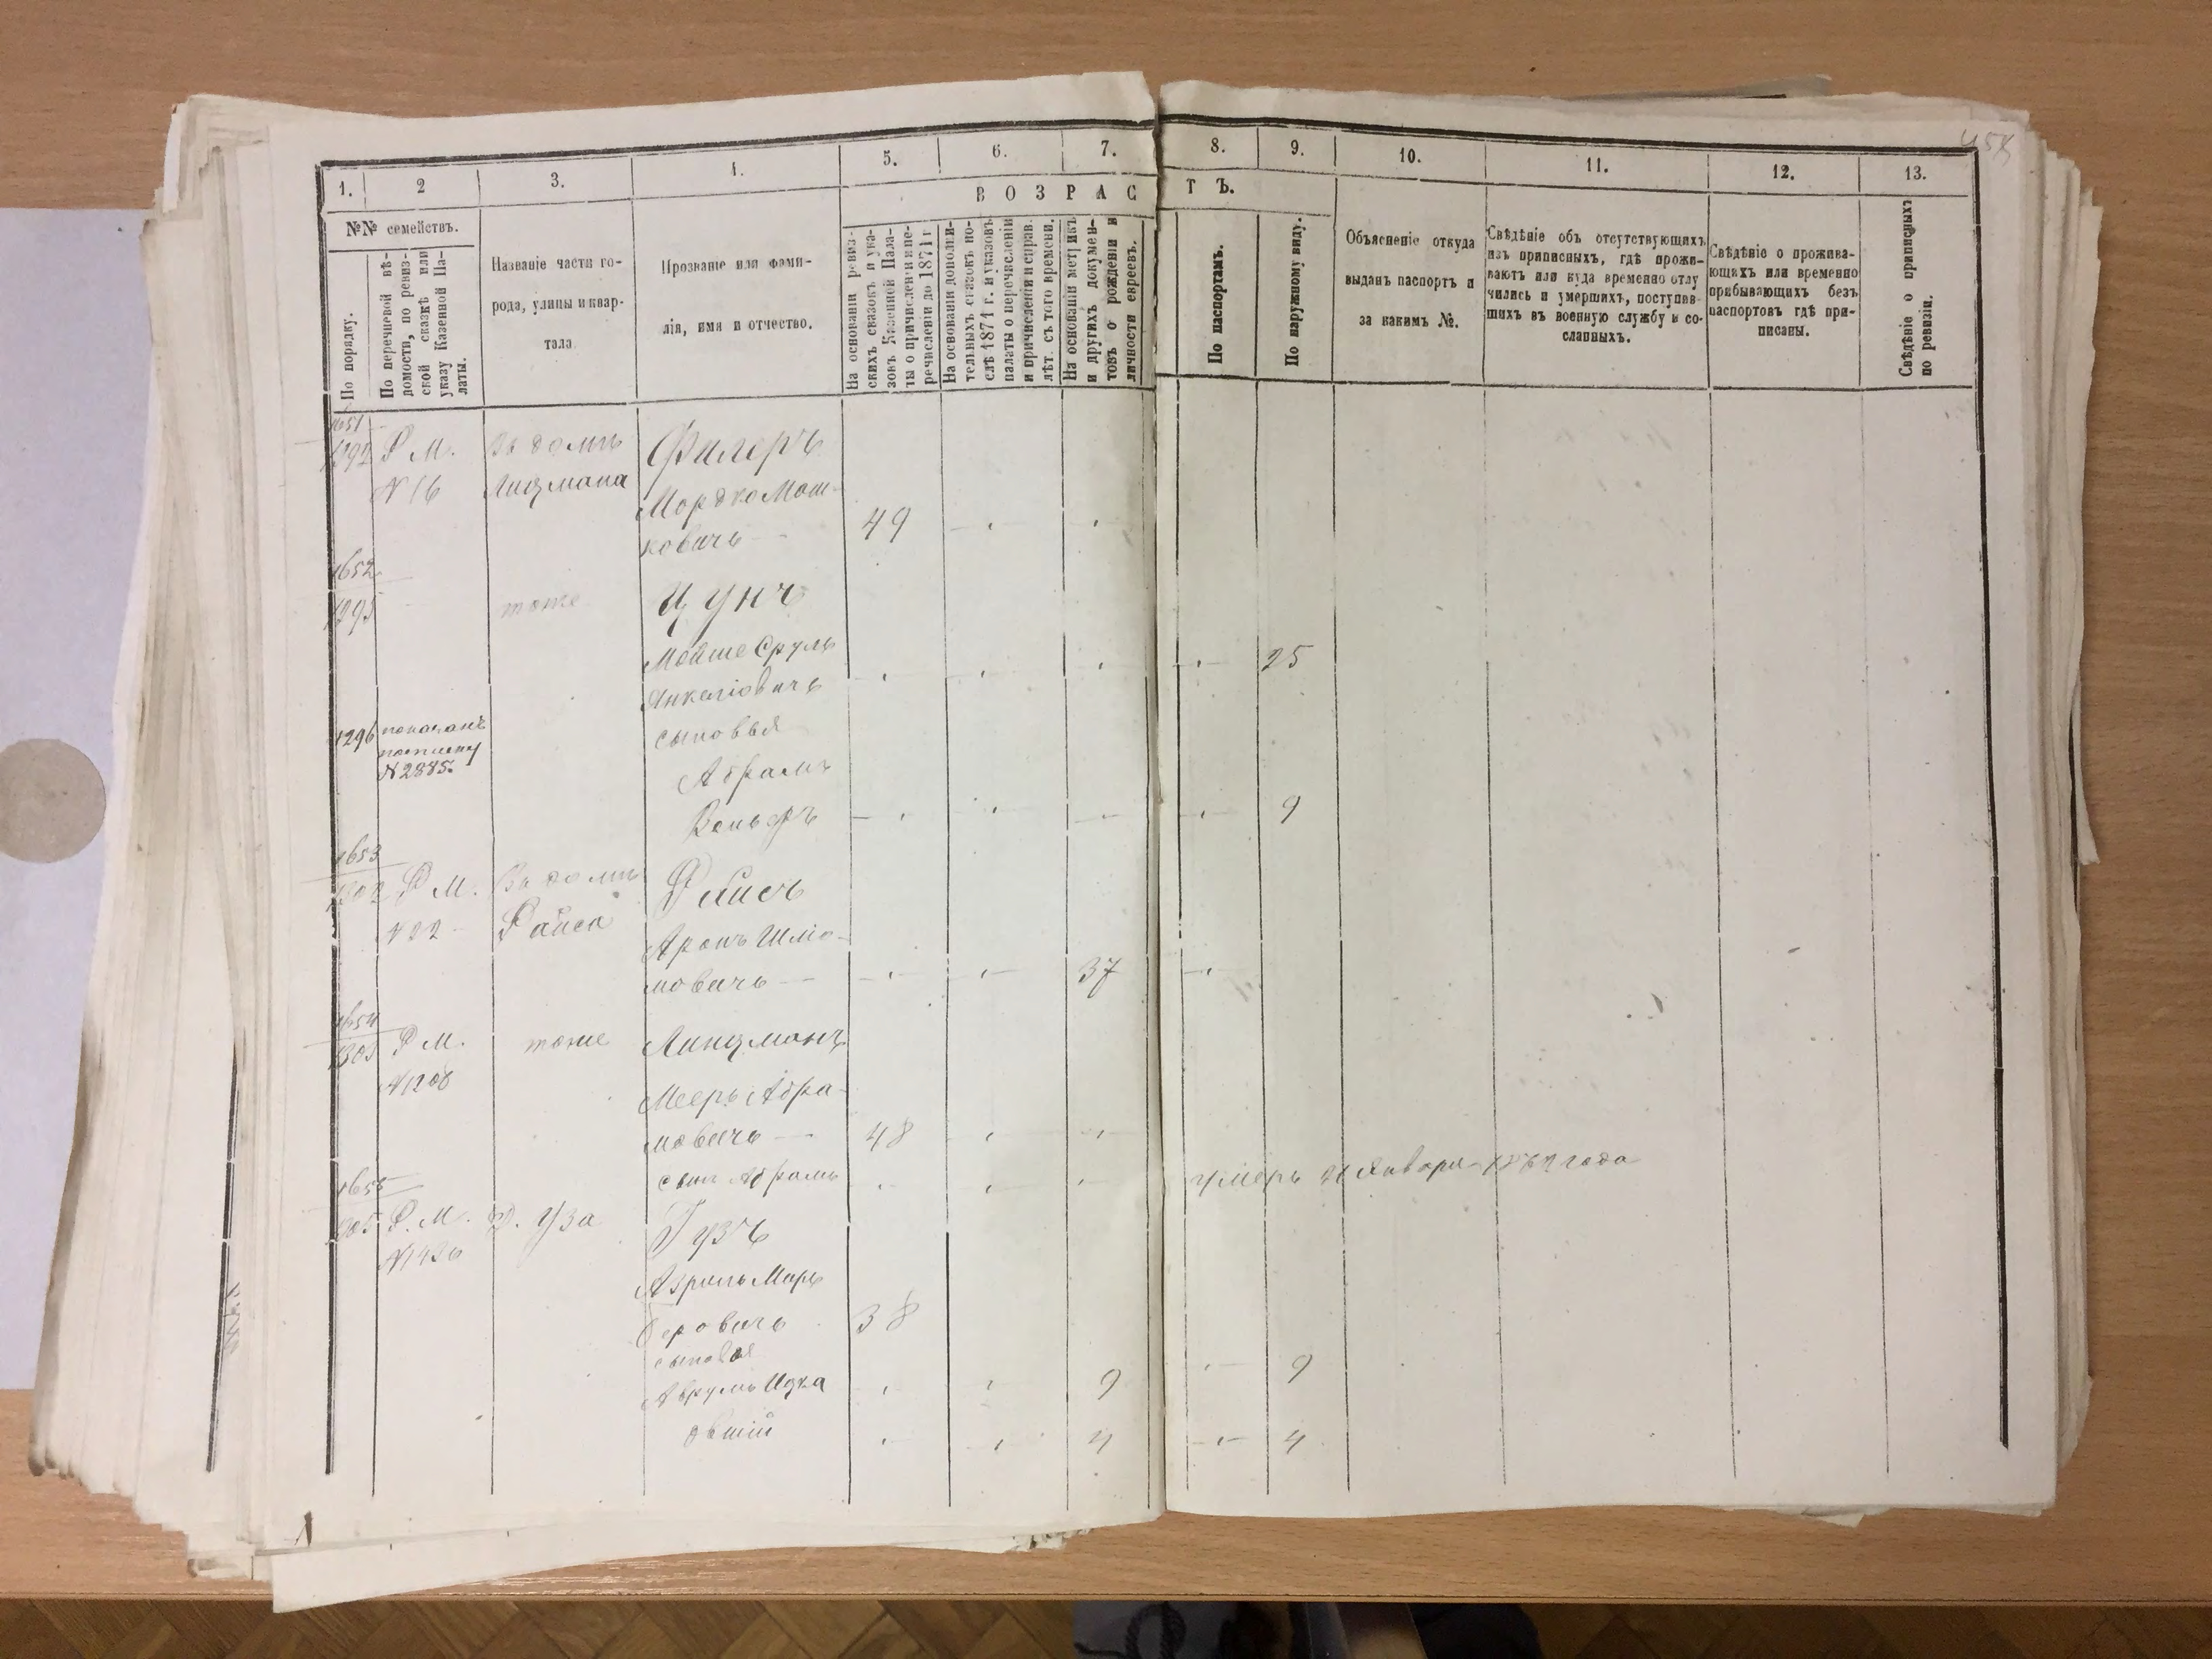 1.
2
3.
4.
5.
6.
7.
8.
9.
10.
11.
12.
13.
В О З Р А С Т Ъ.
№№ семействъ.
По порядку.
По перечневой вѣ-
домости, по ревиз-
ской сказкѣ или
указу Казенной Па-
латы.
Названіе части го-
рода, улицы и квар-
тала.
Прозваніе или фами-
лія, имя и отчество.
На основаніи ревиз-
скихъ сказокъ и ука-
зовъ Казенной Пала-
ты о причисленіи и пе-
речисленіи до 1871 г.
На основаніи дополни-
тельныхъ сказокъ по-
слѣ 1871 г. и указовъ
палаты о перечисленіи
и причисленіи и справ.
лѣт. съ того времени.
На основаніи метрикъ
и другихъ докумен-
товъ о рожденіи и
личности евреевъ.
По паспортамъ.
По наружному виду.
Объясненіе откуда
выданъ паспортъ и
за какимъ №.
Свѣдѣніе объ отсутствующихъ
изъ приписныхъ, гдѣ прожи-
ваютъ или куда временно отлу
чились и умершихъ, поступив-
шихъ въ военную службу и со-
сланныхъ.
Свѣдѣніе о прожива-
ющихъ или временно
прибывающихъ безъ
паспортовъ гдѣ при-
писаны.
Свѣдѣніе о приписныхъ
по ревизіи.
1651
Р М. Въ домѣ Филеръ
N 16 Лицмана Мордко Мош-
ковичъ 49
1652
1295 тоже Цунъ
Мойше Сруль
Янкеліовичъ 25
1296 показанъ
сыновья
N 2885.
Абрамъ
Вольфъ 9
1653
1302 Р М. Въ домѣ Райсъ
N 22 Райса Аронъ Шліо-
мовичъ 37
1654
1303 Р М. тоже Линцманъ
N 1206 Мееръ Абра-
мовичъ 48
сынъ Абрамъ умеръ 21 Января года
1655
1305 Р. М. Д. Гуза Гузъ
N 1426
Азриль Маръ
беровичъ 38
сыновья
Аврумъ Ицка 9 9
Овшій 4 4